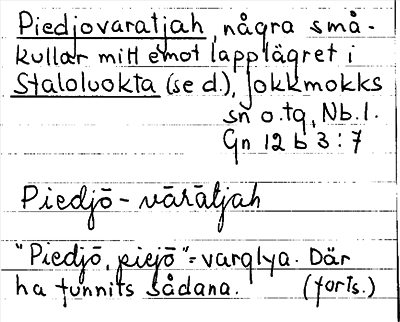 Piedjovaratjah, några små-
kullar mitt emot lapplägret i
Staloluokta (se d.), Jokkmokks
sn o. tg, Nb. l.
Gn 12 b 3 : 7
Piedjō - vārātjah
"Piedjō, piejō" = varglya. Där
ha funnits sådana. (forts.)